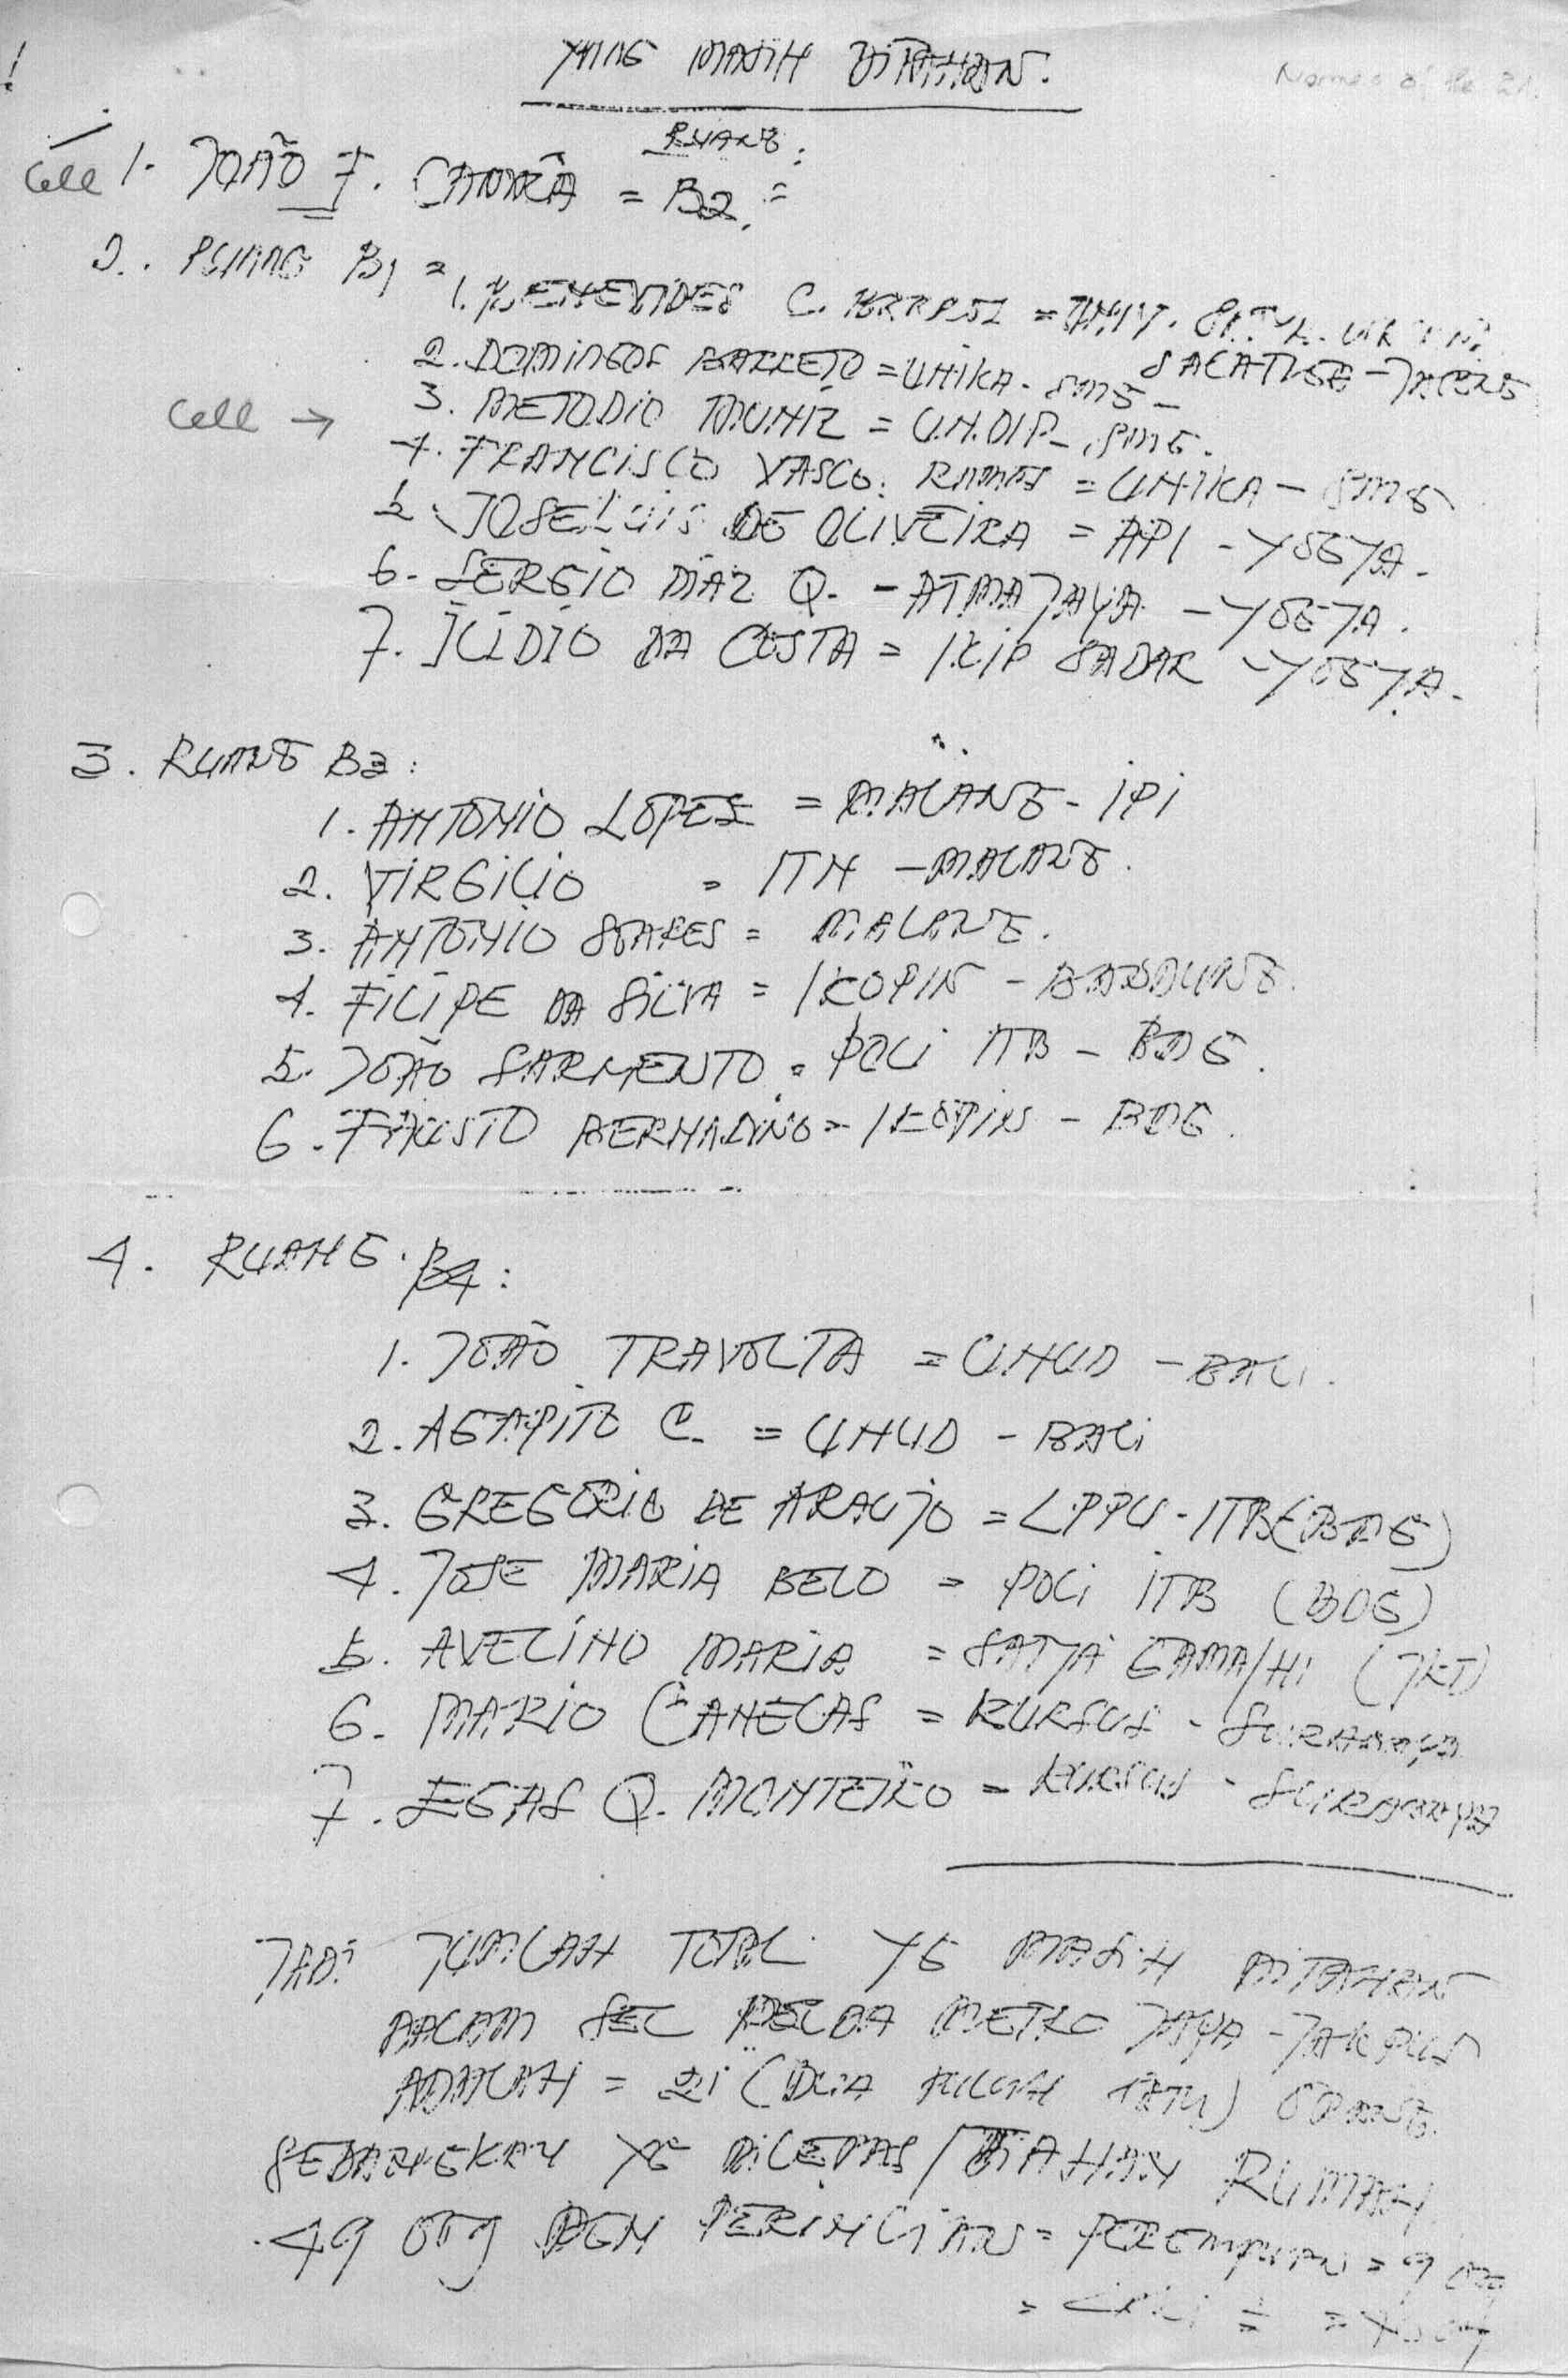 YANG MASIH DITAHAN.
Names of the 21.
RUANG:
Cell 1. JOÃO F. CAMARA = B2.=
2. RUANG B1 =
1. BENEVIDES C. BARROS =
2. DOMINGOS BARRETO = UNIKA - SMG -
Cell → 3. METODIO MUNIZ = UNDIP - SMG.
4. FRANCISCO VASCO RAMOS = UNIKA - SMG
5. JOSE LUIS DE OLIVEIRA = API - YOGYA.
6. SERGIO DIAZ Q. - ATMA JAYA - YOGYA.
7. ILIDIO DA COSTA = IKIP SADAR - YOGYA.
3. RUANG B3:
1. ANTONIO LOPES = MALANG - IPI
2. VIRGILIO = ITN - MALANG.
3. ANTONIO SOARES = MALANG.
4. FILIPE DA SILVA = IKOPIN - BANDUNG.
5. JOÃO SARMENTO = POLI ITB - BDG.
6. FAUSTO BERNADINO = IKOPIN - BDG.
4. RUANG B4:
1. JOÃO TRAVOLTA = UNUD - BALI.
2. AGAPITO C. = UNUD - BALI
3. GREGORIO DE ARAUJO = LPPU - ITB (BDG)
4. JOSE MARIA BELO = POLI ITB (BDG)
5. AVELINO MARIA = SATYA GAMA/HI (JKT)
6. MARIO CANECAS = KURSUS - SURABAYA
7. EGAS Q. MONTEIRO = KURSUS - SURABAYA
JADI JUMLAH TOTAL YG MASIH DITAHAN
DALAM SEL POLDA METRO JAYA - JAKPUS
ADALAH = 21 (DUA PULUH SATU) ORANG.
SEDANGKAN YG DILEPAS/TAHAN RUMAH
49 ORG DGN PERINCIAN = PEREMPUAN = 9 ORG